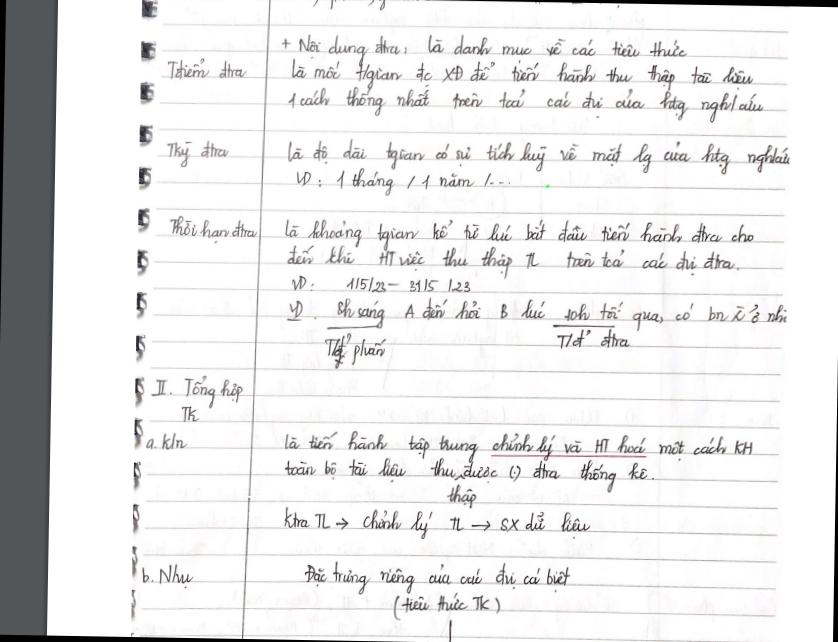 + Nội dung đtra: là danh mục về các tiêu thức
Tđiểm đtra là mốc t/gian đc XĐ để tiến hành thu thập tài liệu
1 cách thống nhất trên toả các đvị của htg ngh/cứu
Tkỳ đtra là độ dài tgian có sự tích luỹ về mặt lg của htg nghcứu
VD: 1 tháng / 1 năm /...
Thời hạn đtra là khoảng tgian kể từ lúc bắt đầu tiến hành đtra cho
đến khi HT việc thu thập TL trên toả các đvị đtra.
VD: 1/5/23 - 31/5/23
VD. 8h sáng A đến hỏi B lúc 10h tối qua, có bn ở nh
T/gđ phvấn T/đ' đtra
II. Tổng hợp
TK
a. kln là tiến hành tập trung chỉnh lý và HT hoá một cách KH
toàn bộ tài liệu thu được (.) đtra thống kê.
thập
Ktra TL → chỉnh lý TL → SX dữ liệu
b. Nhụ Đặc trưng riêng của các đvị cá biệt
(tiêu thức TK)